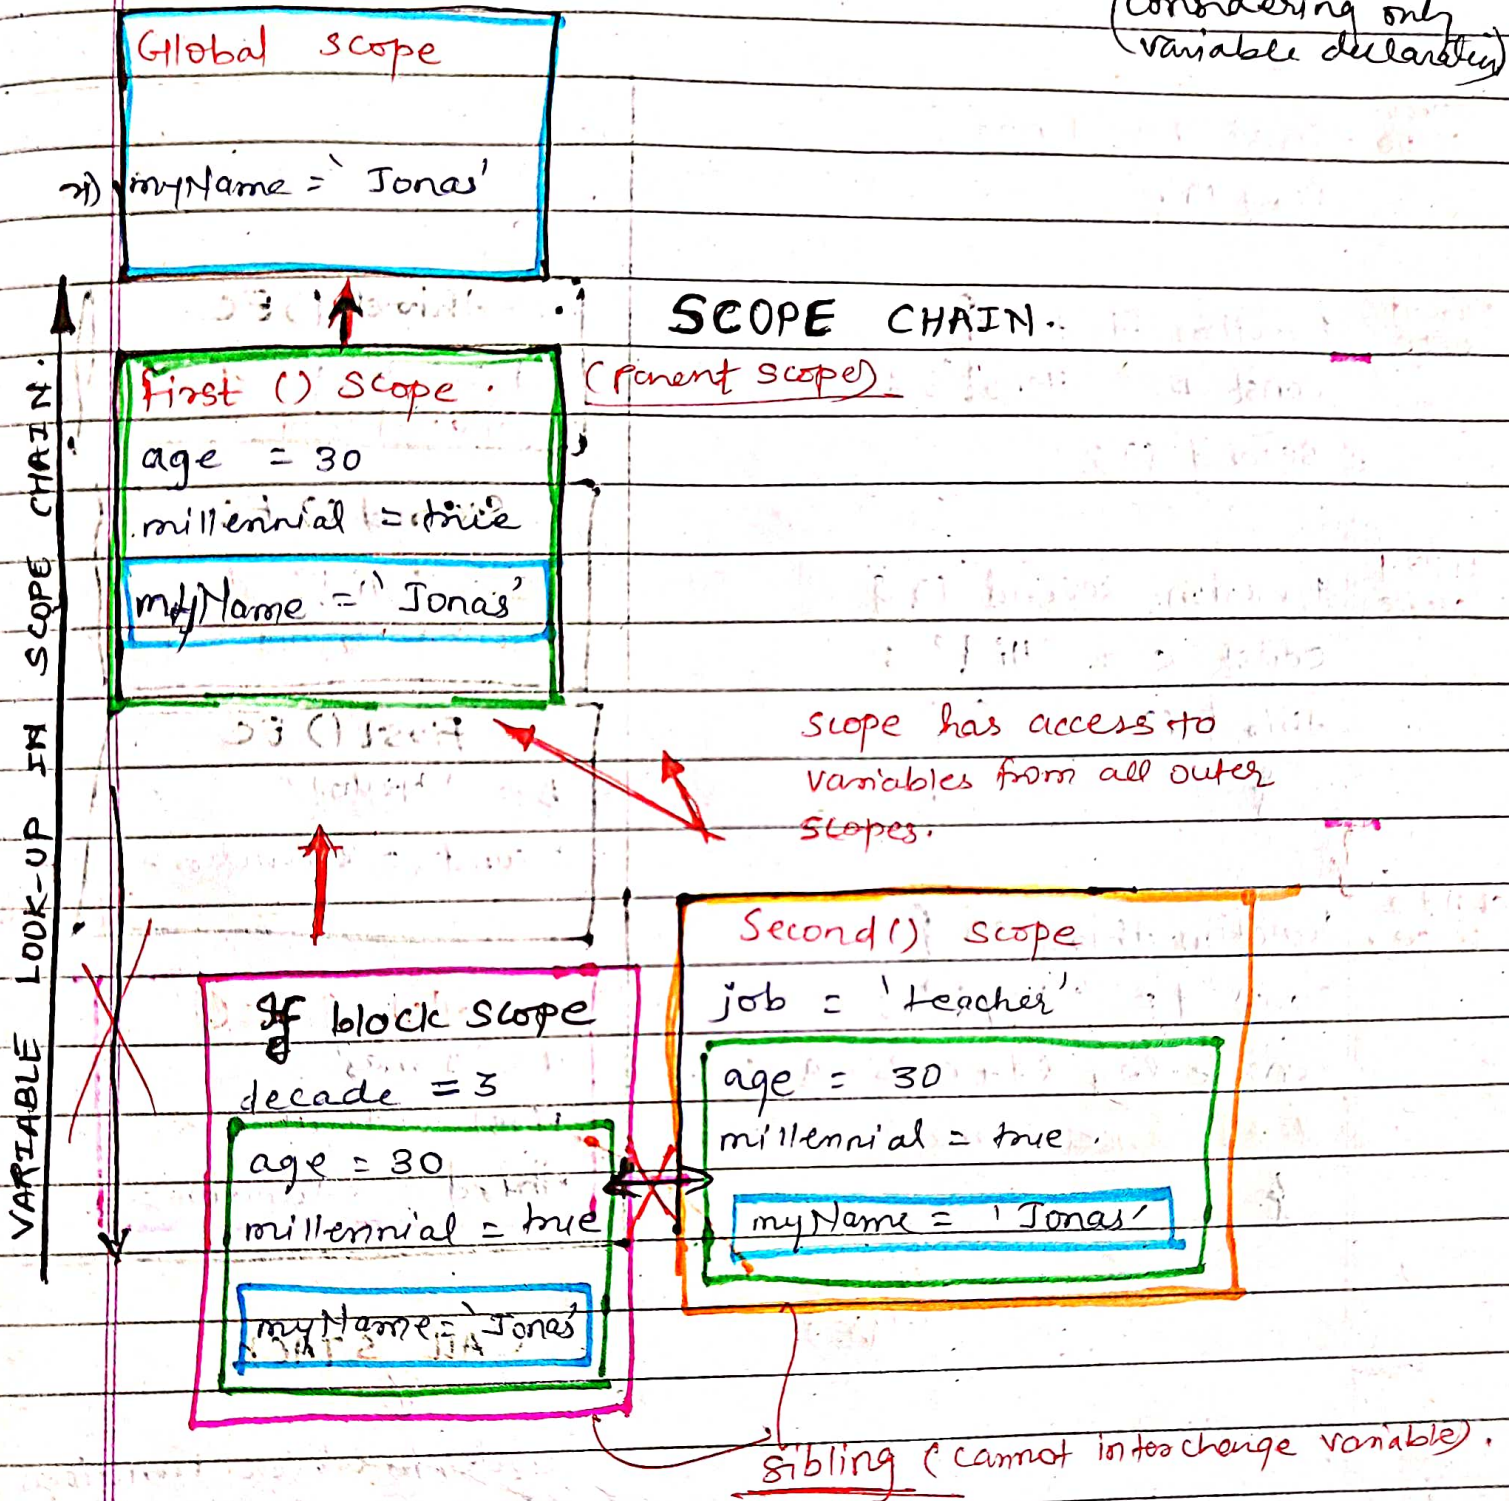 (considering only
(variable declaration)
Global scope
myName = 'Jonas'
SCOPE CHAIN.
First () Scope.
(Parent scope)
age = 30
millennial = true
myName = 'Jonas'
VARIABLE LOOK-UP IN SCOPE CHAIN.
scope has access to
variables from all outer
scopes.
Second() scope
job = 'teacher'
age = 30
millennial = true.
myName = 'Jonas'
If block scope
decade = 3
age = 30
millennial = true
myName = 'Jonas'
sibling (cannot interchange variable).